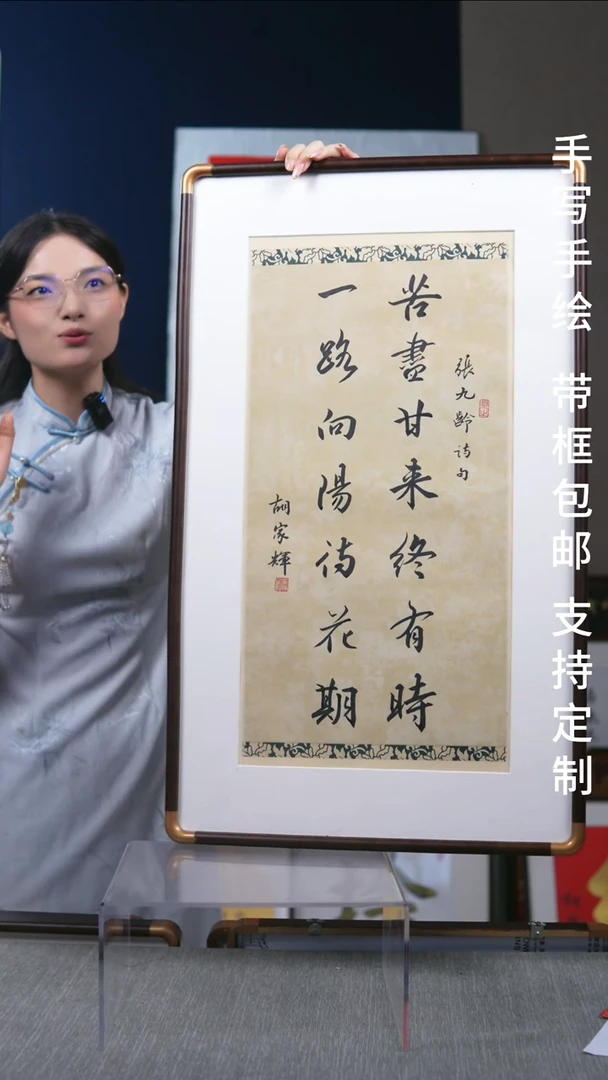 張九齡诗句
苦盡甘来終有時
一路向陽待花期
胡家輝
手写手绘 带框包邮 支持定制